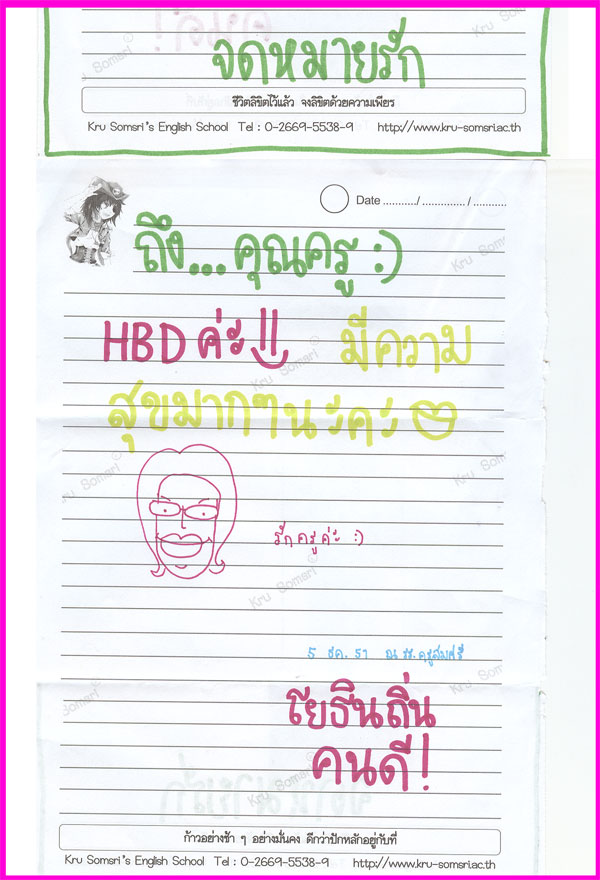 จดหมายรัก
ชีวิตลิขิตไว้แล้ว จงลิขิตด้วยความเพียร
Kru Somsri's English School Tel : 0-2669-5538-9 http://www.kru-somsri.ac.th
Date ........../............../...........
ถึง...คุณครู :)
HBD ค่ะ!! มีความ
สุขมากๆนะคะ
รักครูค่ะ :)
5 ธค. 51 ณ รร.ครูสมศรี
โยธินถิ่น
คนดี!
ก้าวอย่างช้า ๆ อย่างมั่นคง ดีกว่าปักหลักอยู่กับที่
Kru Somsri's English School Tel : 0-2669-5538-9 http://www.kru-somsri.ac.th